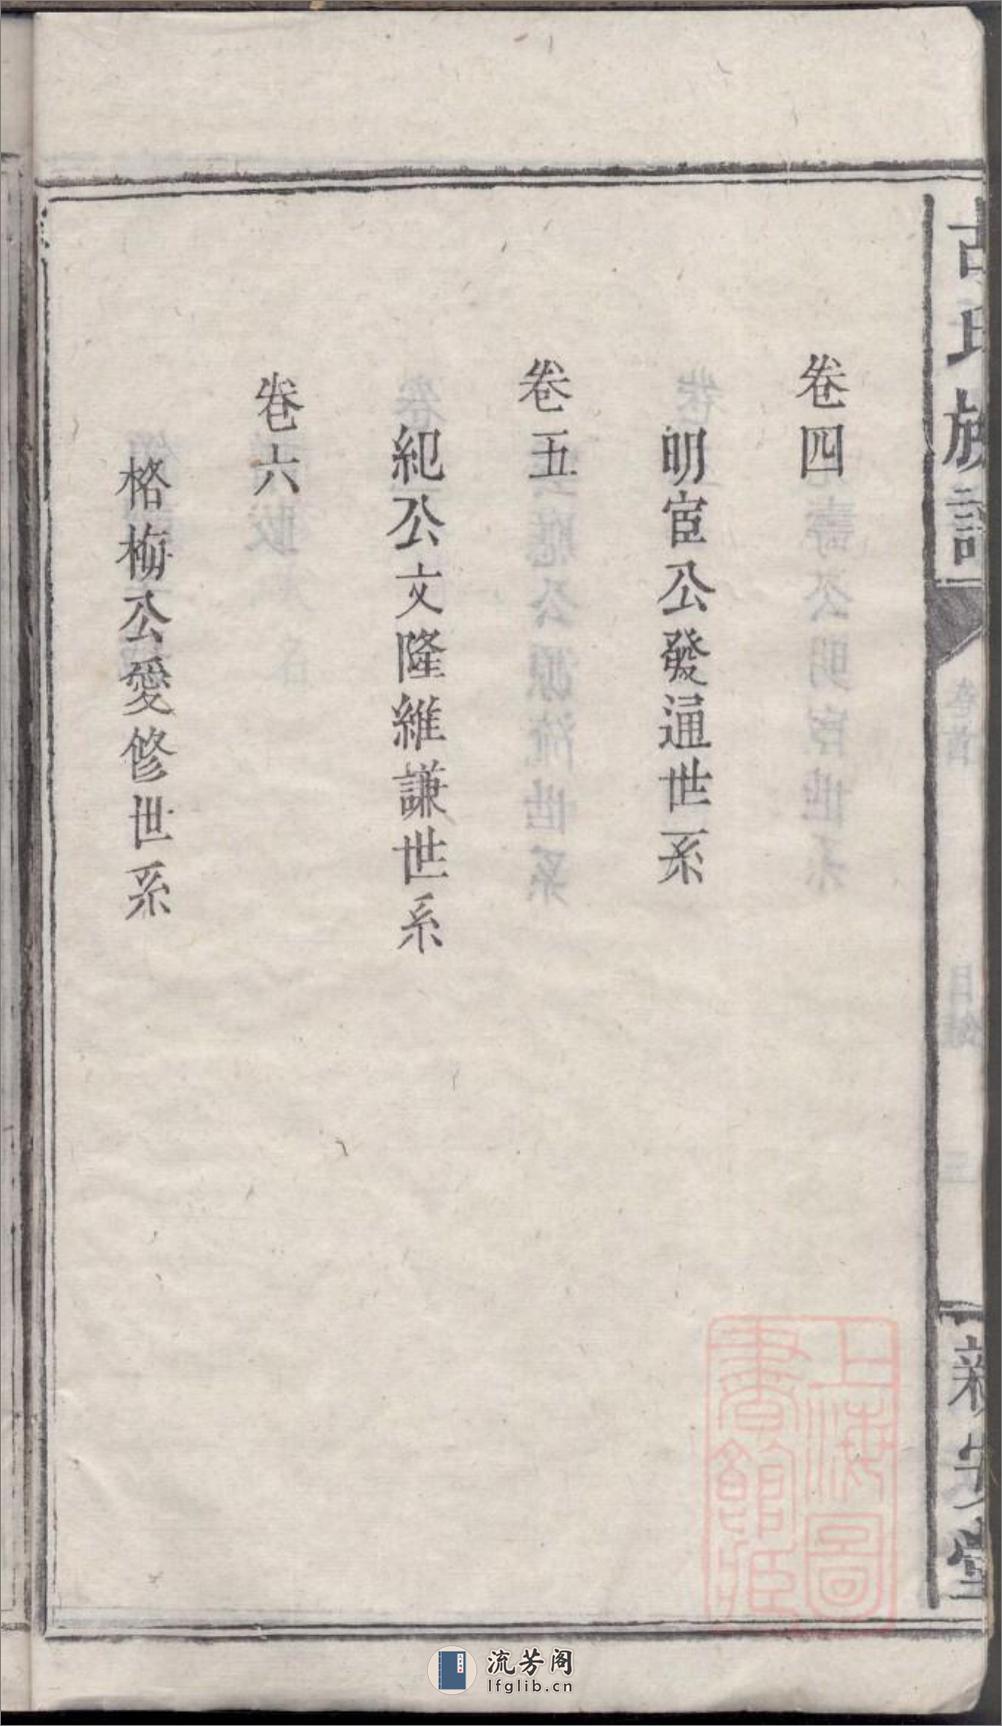 胡氏族譜
新安堂
卷四
明宦公發通世系
卷五
紀公文隆維謙世系
卷六
格梅公愛修世系
上海圖
書館藏
流芳阁
lfglib.cn